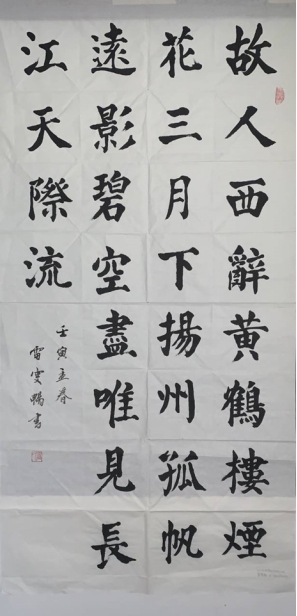 故人西辭黃鶴樓煙
花三月下揚州孤帆
遠影碧空盡唯見長
江天際流
壬寅孟春
雷雯暘書